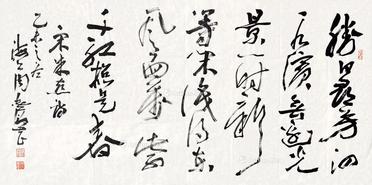 勝日尋芳泗
水濱无邊光
景一时新
等閒識得東
風面萬紫
千紅總是春
宋朱熹詩
乙未之
海上周